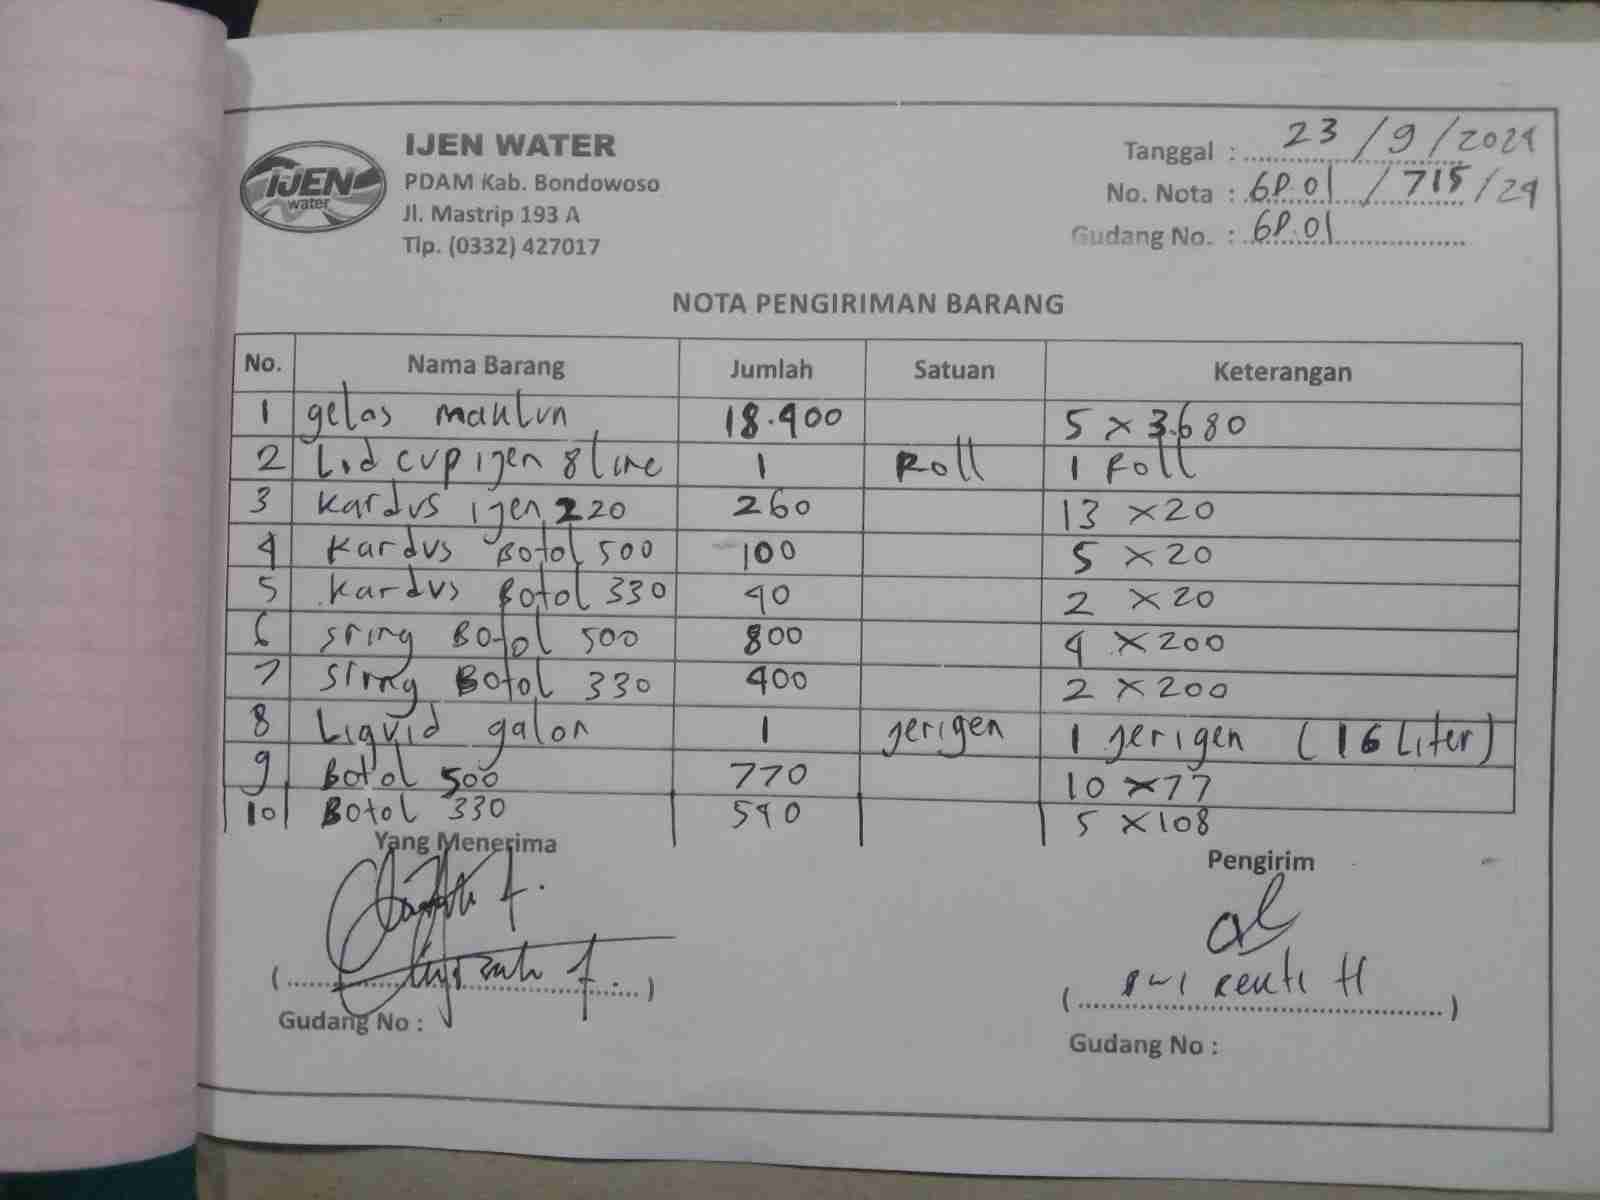 IJEN WATER
PDAM Kab. Bondowoso
Jl. Mastrip 193 A
Tlp. (0332) 427017
IJEN
water
Tanggal : 23 / 9 / 2024
No. Nota : GP.01 / 715 / 24
Gudang No. : GP.01
NOTA PENGIRIMAN BARANG
No. Nama Barang Jumlah Satuan Keterangan
1 gelas maklun 18.400 5 x 3.680
2 Lid cup ijen 8 line 1 Roll 1 Roll
3 Kardus ijen 220 260 13 x 20
4 Kardus Botol 500 100 5 x 20
5 Kardus Botol 330 40 2 x 20
6 sring Botol 500 800 4 x 200
7 sring Botol 330 400 2 x 200
8 Liquid galon 1 jerigen 1 jerigen (16 Liter)
9 Botol 500 770 10 x 77
10 Botol 330 540 5 x 108
Yang Menerima
Pengirim
Gudang No :
Gudang No :